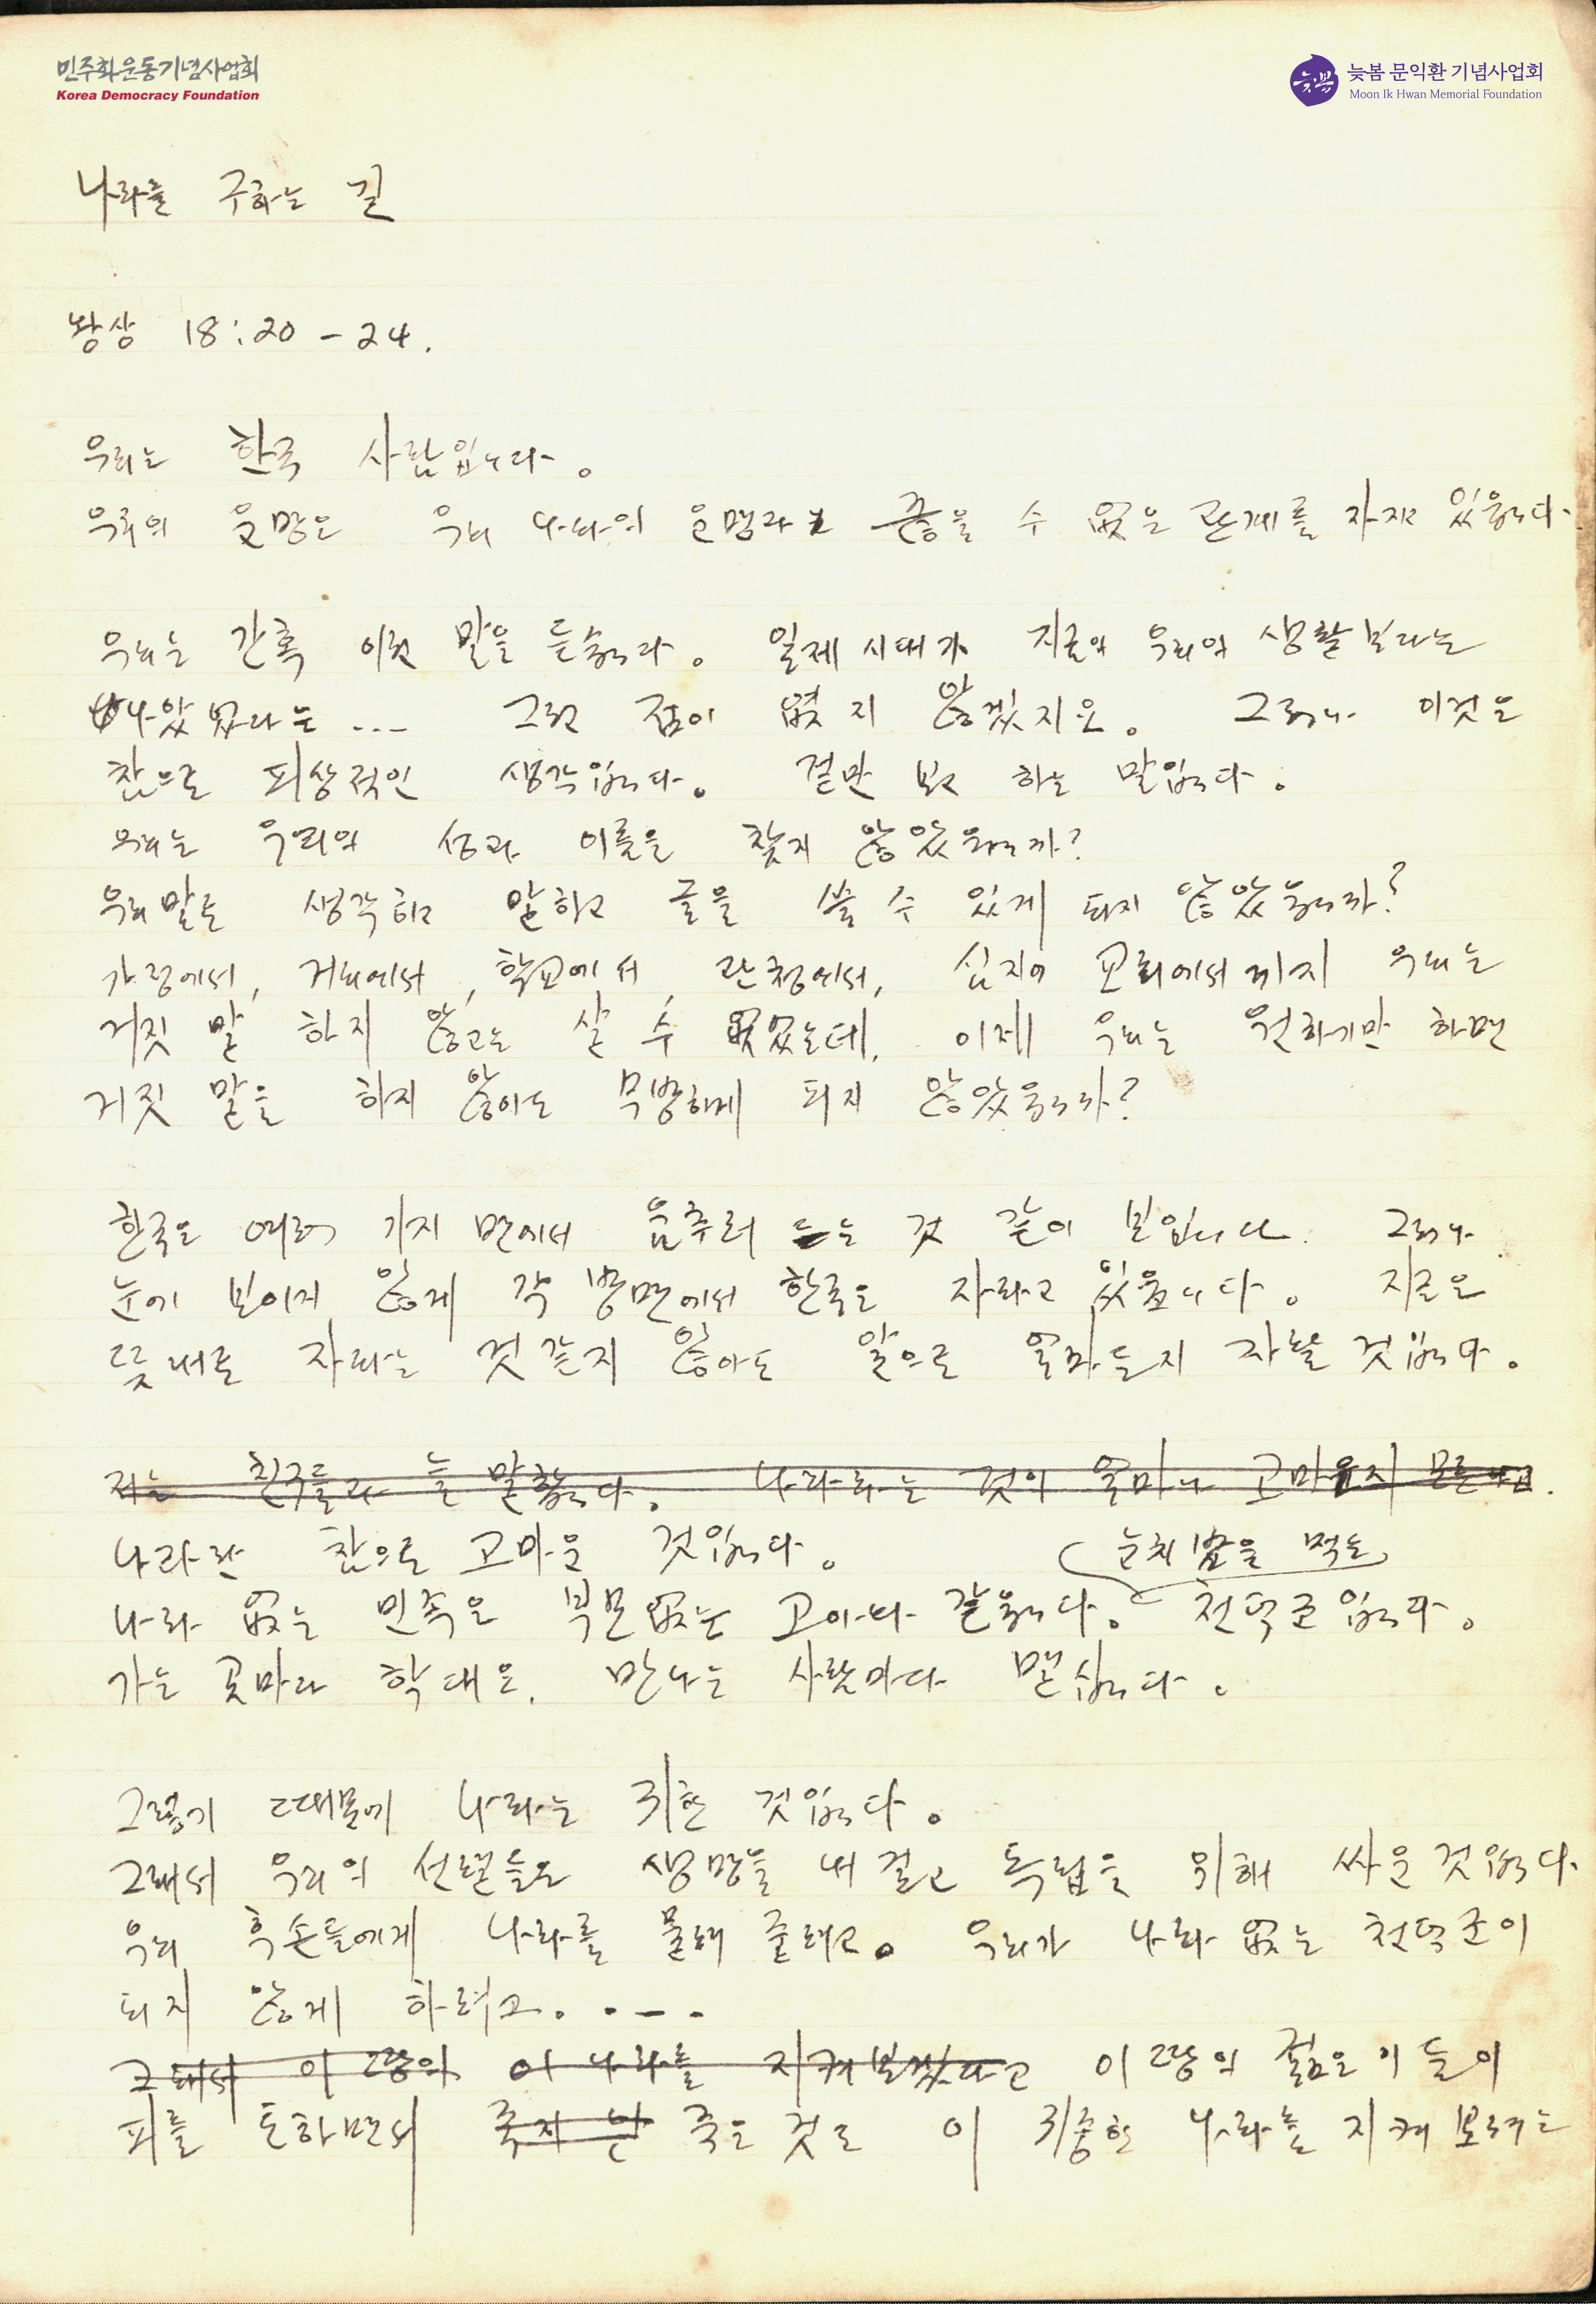 민주화운동기념사업회
Korea Democracy Foundation
늦봄 문익환 기념사업회
Moon Ik Hwan Memorial Foundation
나라를 구하는 길
왕상 18:20-24.
우리는 한국 사람입니다.
우리의 운명은 우리 나라의 운명과 끊을 수 없은 관계를 가지고 있읍니다
우리는 간혹 이런 말을 듣습니다. 일제 시대가 지금의 우리의 생활보다는
나았었다는 ... 그런 점이 없지 않겠지요. 그러나 이것은
참으로 피상적인 생각입니다. 겉만 보고 하는 말입니다.
우리는 우리의 성과 이름을 찾지 않았읍니까?
우리말로 생각하고 말하고 글을 쓸 수 있게 되지 않았읍니까?
가정에서, 거리에서, 학교에서, 관청에서, 심지어 교회에서까지 우리는
거짓 말 하지 않고는 살 수 없었는데, 이제 우리는 원하기만 하면
거짓 말을 하지 않아도 무방하게 되지 않았읍니까?
한국은 여러 가지 면에서 움추러 드는 것 같이 보입니다. 그러나
눈에 보이지 않게 각 방면에서 한국은 자라고 있읍니다. 지금은
뜻대로 자라는 것 같지 않아도 앞으로 얼마든지 자랄 것입니다.
저는 친구들과 늘 말합니다. 나라라는 것이 얼마나 고마운지 모른다고.
나라란 참으로 고마운 것입니다.
눈치 밥을 먹는
나라 없는 민족은 부모없는 고아와 같읍니다. 천덕군입니다.
가는 곳마다 학대요, 만나는 사람마다 멸십니다.
그렇기 때문에 나라는 귀한 것입니다.
그래서 우리의 선열들은 생명을 내 걸고 독립을 위해 싸운 것입니다
우리 후손들에게 나라를 물려 줄려고. 우리가 나라 없는 천덕군이
되지 않게 하려고. . - -
그래서 이 땅의 이 나라를 지켜보겠다고 이 땅의 젊은이들이
피를 토하면서 죽지 는 죽는 것도 이 귀중한 나라를 지켜 보려는